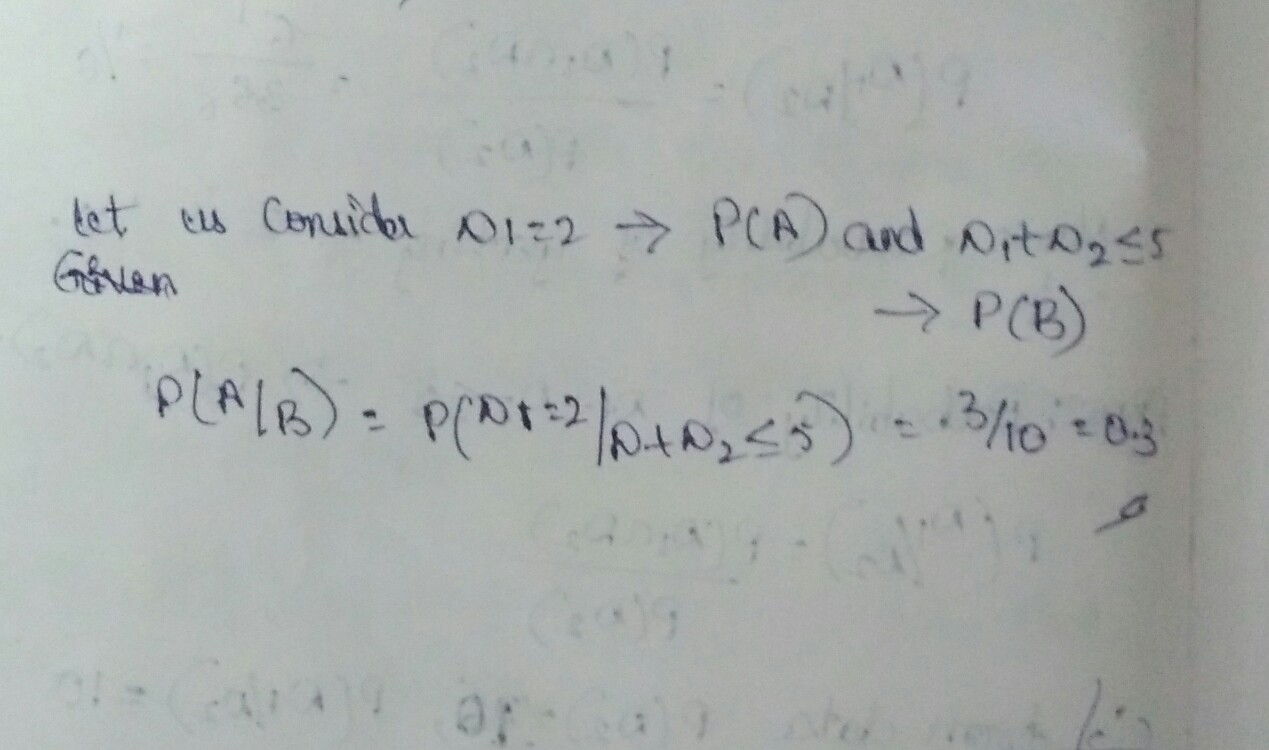 Let us Consider D1=2 → P(A) and D1+D2≤5
Given
→ P(B)
P(A|B) = P(D1=2/D+D2≤5) = .3/10 = 0.3